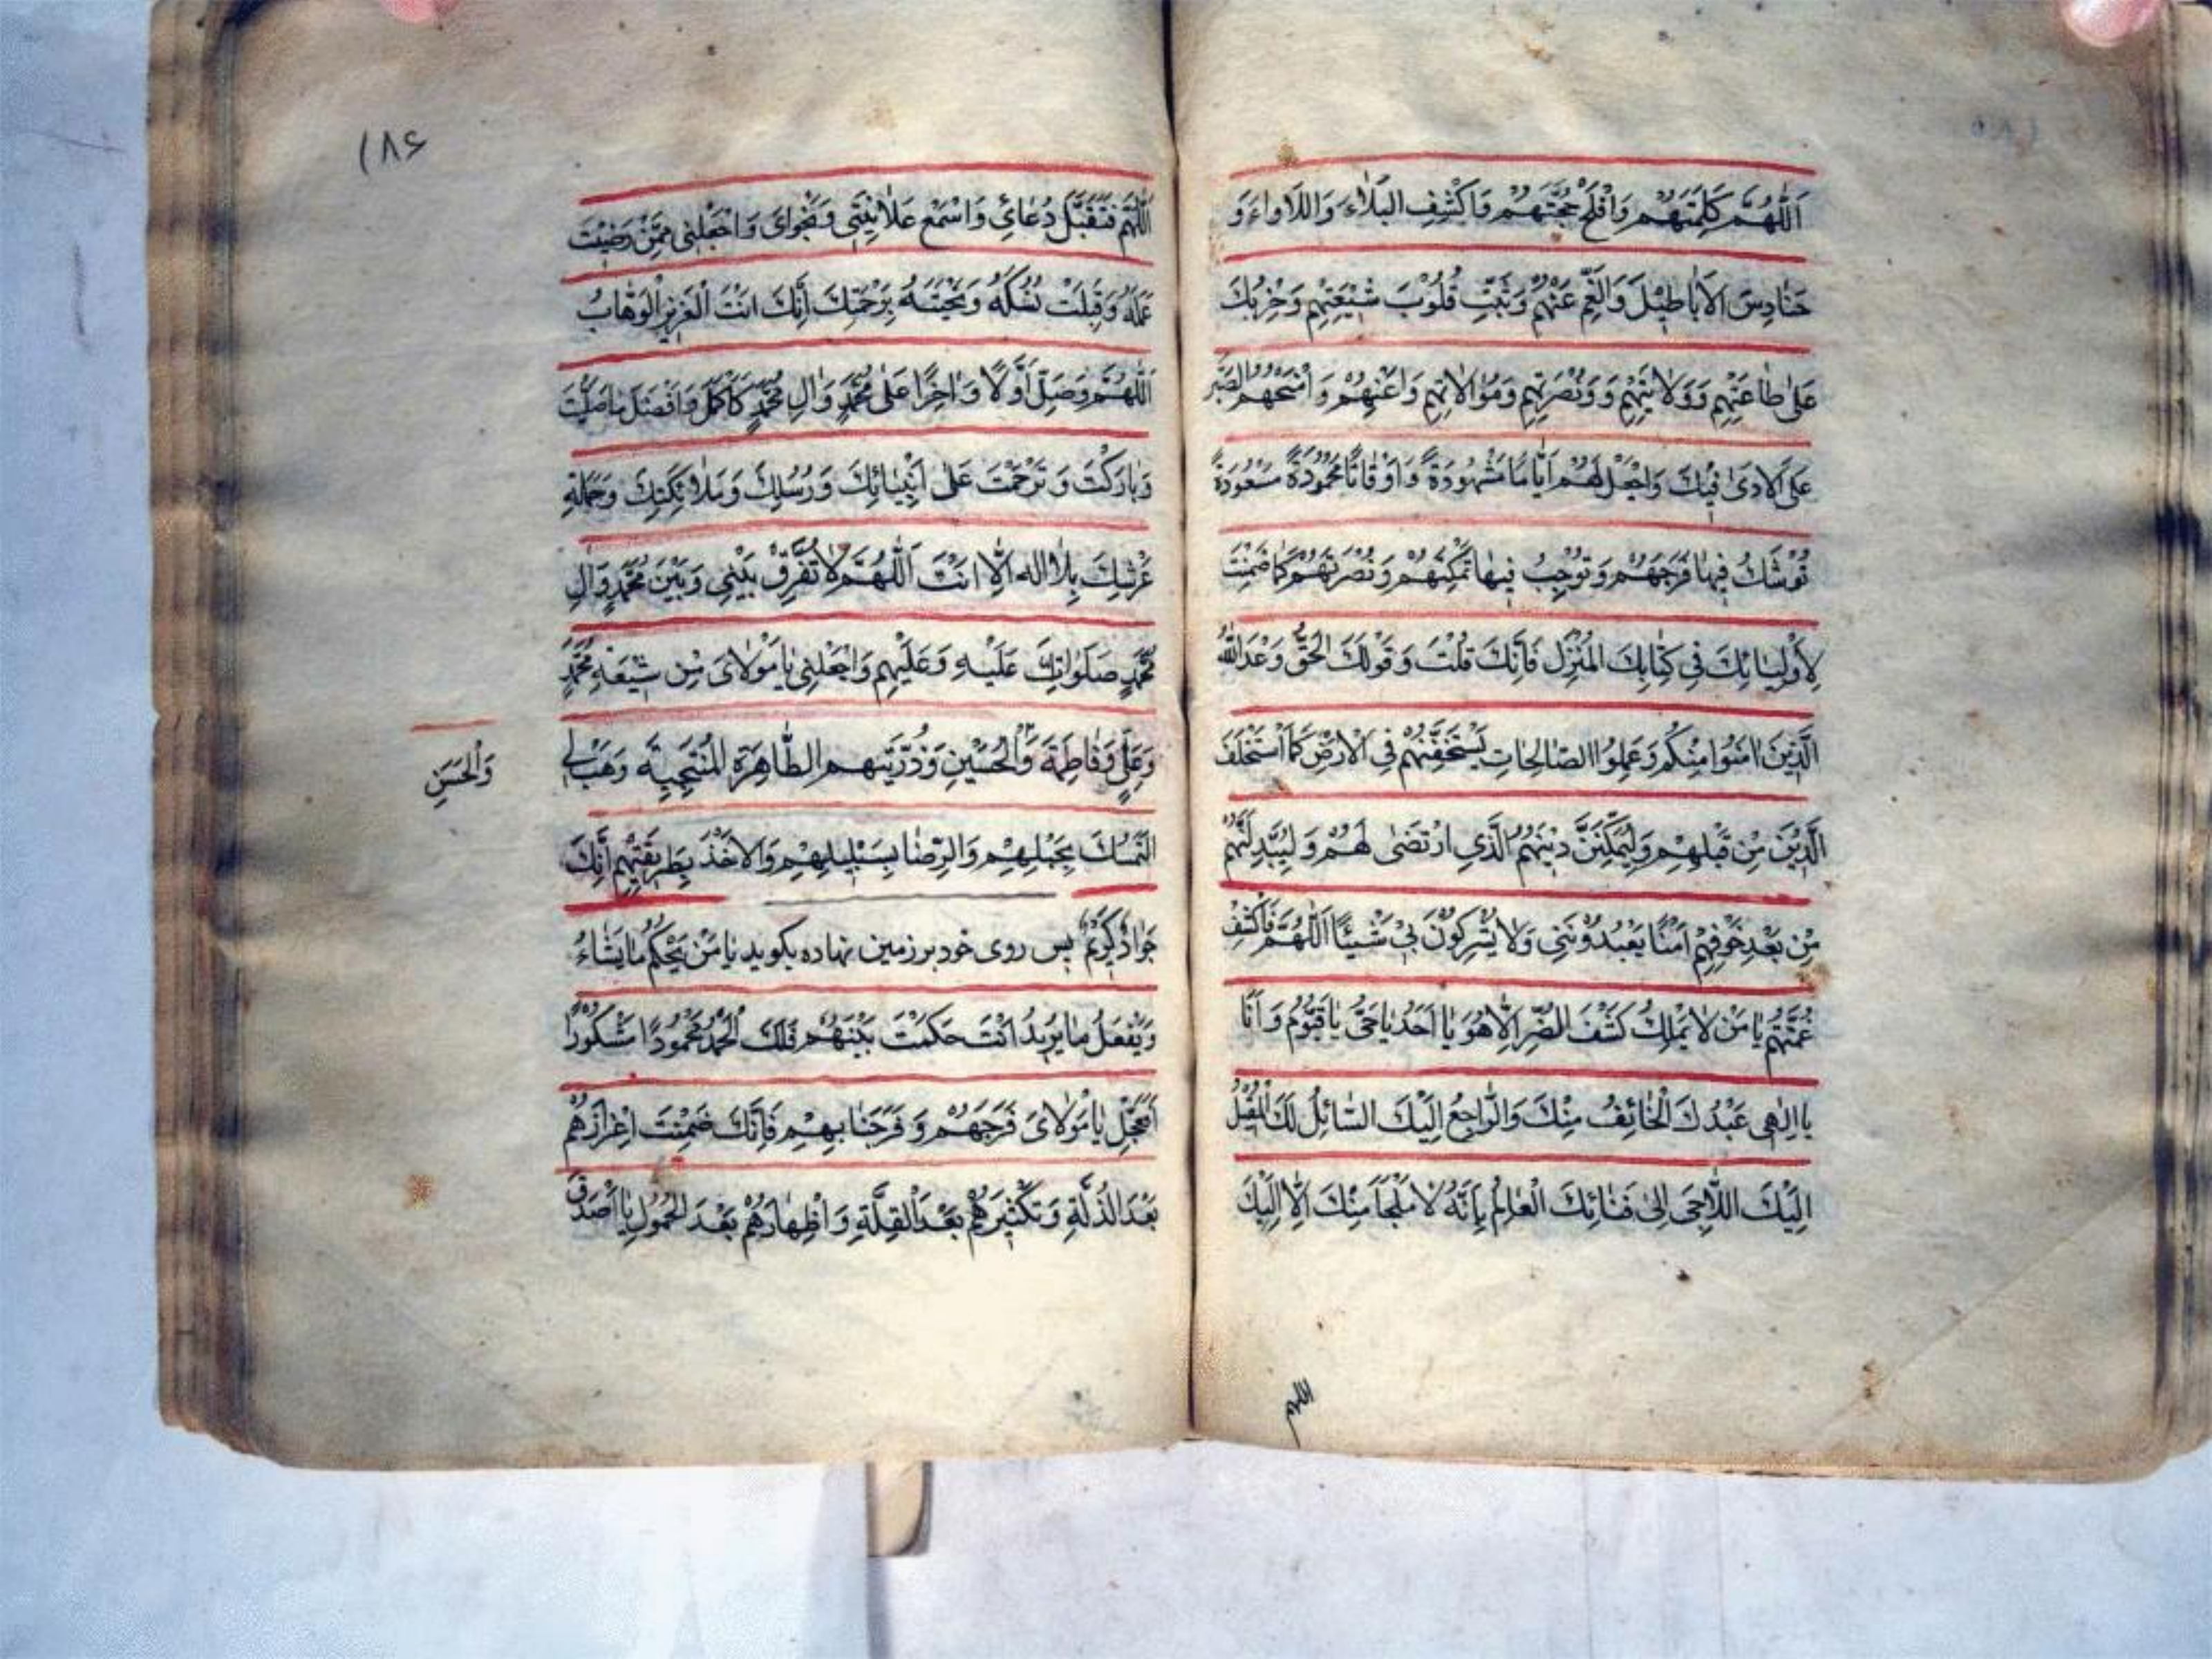 اَللّٰهُمَّ كَلِمَتَهُمْ وَافْلَحْ حُجَّتَهُمْ وَاكْشِفِ البَلٰاءَ وَاللَاواءَ وَ
حَنٰادِسَ الاَباطيْلَ وَالغَمِّ عَنْهُمْ وَثَبِّتْ قُلُوْبَ شيْعَتِهِمْ وَحِزْبِكَ
عَلىٰ طٰاعَتِهِمْ وَوَلايَتِهِمْ وَوَنُصْرَتِهِمْ وَمُوالاتِهِم وَاَعْنِهِمْ وَامْنَحْهُمُ الصَّبْرَ
عَلىَ الاَذىٰ فيْكَ وَاجْعَلْ لَهُمْ اَيّٰامًا مَشْهُودَةً وَاَوْقاتًا مَحْمُودَةً مَسْعُودَةً
تُوشَكُ فِيهٰا فَرَجَهُمْ وَتُوْجِبُ فيهٰا تَمْكِنَهُمْ وَنُصْرَتَهُمْ كَمٰا ضَمِنْتَ
لِاَوْلِيٰائِكَ في كِتٰابِكَ المُنْزَلِ فَاِنَّكَ قُلْتَ وَقَوْلُكَ الحَقُّ وَعَدَ اللّٰهُ
الَّذينَ اٰمَنُوا مِنْكُم وَعَمِلُوا الصّٰالِحٰاتِ لَيَسْتَخْلِفَنَّهُمْ فِي الاَرْضِ كَمَا اسْتَخْلَفَ
الَّذِيْنَ مِنْ قَبْلِهِمْ وَلَيُمَكِّنَنَّ دِيْنَهُمُ الَّذي ارْتَضىٰ لَهُمْ وَلَيُبَدِّلَنَّهُمْ
مِنْ بَعْدِ خَوْفِهِمْ اَمْنًا يَعْبُدُوْنَنِى وَلا يُشْرِكُوْنَ بي شَيْئًا اَللّٰهُمَّ فَاكْشِفْ
غُمَّتَهُمْ يٰا مَنْ لا يَمْلِكُ كَشْفَ الضُّرِّ اِلّٰا هُوَ يٰا اَحَدُ يٰا حَىُّ يٰا قَيُّوْمُ وَاَنَا
يٰا اِلٰهى عَبْدُكَ الْخٰائِفُ مِنْكَ وَالرّٰاجِعُ اِلَيْكَ السّٰائِلُ لَكَ الْمُقْبِلُ
اِلَيْكَ اللّٰاجىَ اِلىٰ فَنٰائِكَ الْعٰالِمُ بِاَنَّهُ لا مَلْجَأَ مِنْكَ اِلّٰا اِلَيْكَ
اللهم
١٨۶
اَللّٰهُمَّ فَتَقَبَّلْ دُعٰائي وَاسْمَعْ عَلانِيَتي وَنَجْوٰاىَ وَاجْعَلْنى مِمَّنْ رَضِيْتَ
عَمَلَهُ وَقَبِلْتَ نُسُكَهُ وَنَجَّيْتَهُ بِرَحْمَتِكَ اِنَّكَ اَنْتَ الْعَزيزُ الْوَهّٰابُ
اَللّٰهُمَّ وَصَلِّ اَوَّلًا وَاٰخِرًا عَلىٰ مُحَمَّدٍ وَاٰلِ مُحَمَّدٍ كَاَكْمَلِ وَاَفْضَلِ مٰا صَلَّيْتَ
وَبٰارَكْتَ وَتَرَحَّمْتَ عَلىٰ اَنْبِيٰائِكَ وَرُسُلِكَ وَمَلٰائِكَتِكَ وَحَمَلَةِ
عَرْشِكَ بِلٰا اله اِلّٰا اَنْتَ اَللّٰهُمَّ لاٰ تُفَرِّقْ بَيْنِي وَبَيْنَ مُحَمَّدٍ وَاٰلِ
مُحَمَّدٍ صَلَوٰاتِكَ عَلَيْهِ وَعَلَيْهِم وَاجْعَلنِى يٰا مَوْلاىَ مِن شيْعَةِ مُحَمَّدٍ
وَعَلِىٍّ وَفٰاطِمَةَ وَالْحُسَيْنِ وَذُرِّيَّتِهِم الطّٰاهِرَةِ المُنْتَجَبِةِ وَهَبْ لي
وَالْحَسَنِ
التَّمَسُّكَ بِحَبْلِهِمْ وَالرِّضٰا بِسَبيلِهِمْ وَالاَخْذَ بِطَريقَتِهِمْ اِنَّكَ
جَوٰادٌ كَرِيْمٌ پس روى خود بر زمين نهاده بكويد يٰا مَنْ يَحْكُمُ مٰا يَشٰاءُ
وَيَفْعَلُ مٰا يُرِيدُ اَنْتَ حَكَمْتَ بَيْنَهُمْ فَلَكَ الْحَمْدُ مَحْمُودًا مَشْكُورًا
فَعَجِّلْ يٰا مَوْلاىَ فَرَجَهُمْ وَفَرَجَنٰا بِهِمْ فَاِنَّكَ ضَمِنْتَ اِعْزازَهُمْ
بَعْدَ الذِّلَّةِ وَتَكْثيرَهُمْ بَعْدَ الْقِلَّةِ وَاِظْهٰارَهُمْ بَعْدَ الخُمُولِ يٰا اَصْدَقَ